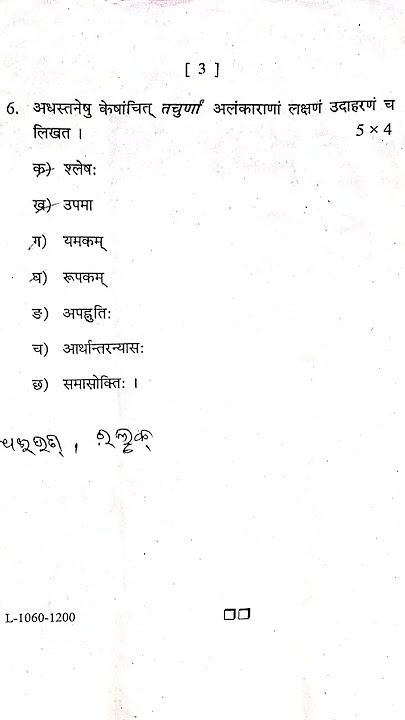 [ 3 ]
6. अधस्तनेषु केषांचित् तचुर्णां अलंकाराणां लक्षणं उदाहरणं च
लिखत । 5 × 4
क) श्लेषः
ख) उपमा
ग) यमकम्
घ) रूपकम्
ङ) अपह्नुतिः
च) आर्थान्तरन्यासः
छ) समासोक्तिः ।
L-1060-1200